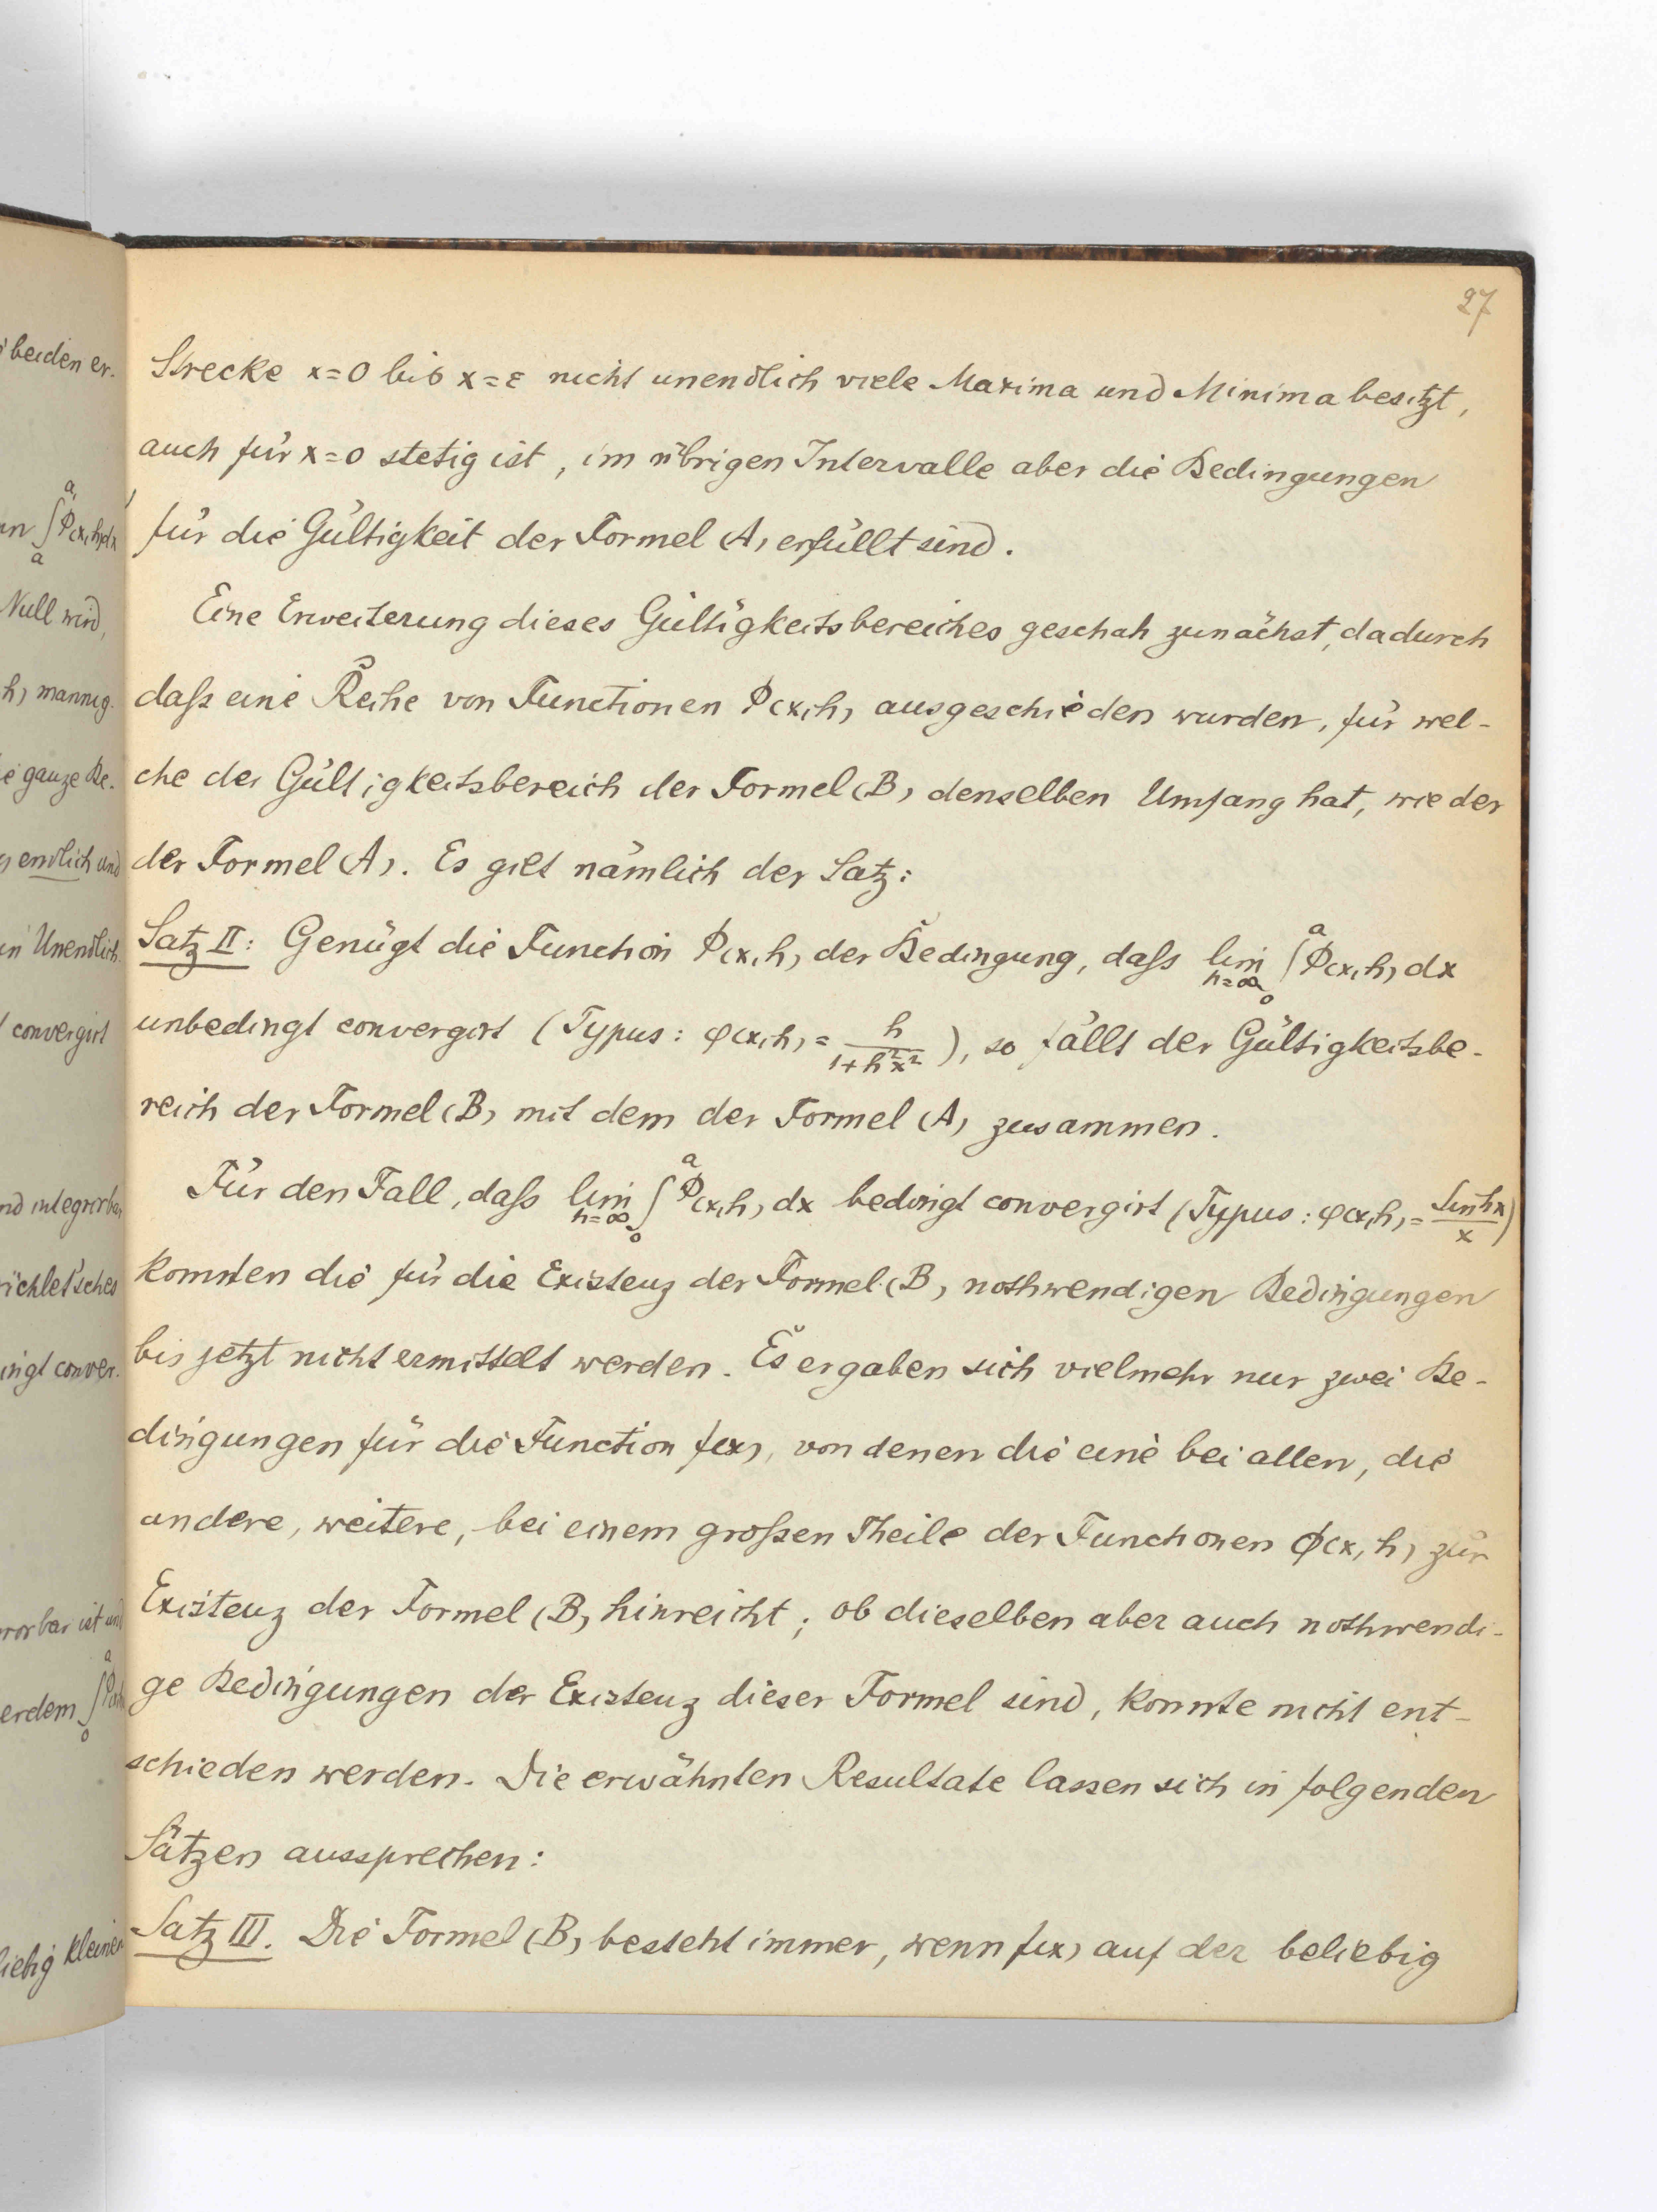 27
Strecke x=0 bis x=ε nicht unendlich viele Maxima und Minima besitzt,
auch für x=0 stetig ist, im übrigen Intervalle aber die Bedingungen
für die Gültigkeit der Formel (A) erfüllt sind.
Eine Erweiterung dieses Gültigkeitsbereiches geschah zunächst, dadurch
daß eine Reihe von Functionen Φ(x,h) ausgeschieden wurden, für wel-
che der Gültigkeitsbereich der Formel (B) denselben Umfang hat, wie der
der Formel (A). Es gilt nämlich der Satz:
Satz II: Genügt die Function Φ(x,h) der Bedingung, daß lim_{h=∞} ∫_0^a Φ(x,h) dx
unbedingt convergirt (Typus: φ(x,h) = h/(1+h²x²)), so fällt der Gültigkeitsbe-
reich der Formel (B) mit dem der Formel (A) zusammen.
Für den Fall, daß lim_{h=∞} ∫_0^a Φ(x,h) dx bedingt convergirt (Typus: φ(x,h) = Sin hx/x)
konnten die für die Existenz der Formel (B) nothwendigen Bedingungen
bis jetzt nicht ermittelt werden. Es ergaben sich vielmehr nur zwei Be-
dingungen für die Function f(x), von denen die eine bei allen, die
andere, weitere, bei einem großen Theile der Functionen Φ(x,h) zur
Existenz der Formel (B) hinreicht; ob dieselben aber auch nothwendi-
ge Bedingungen der Existenz dieser Formel sind, konnte nicht ent-
schieden werden. Die erwähnten Resultate lassen sich in folgenden
Sätzen aussprechen:
Satz III. Die Formel (B) besteht immer, wenn f(x) auf der beliebig
beiden er-
∫_a^{a_1} Φ(x,h)dx
Null wird,
h) mannig-
ganze Be-
endlich und
Unendlich
convergirt
integrirbar
conver-
ist und
erdem ∫_0^a
kleinen